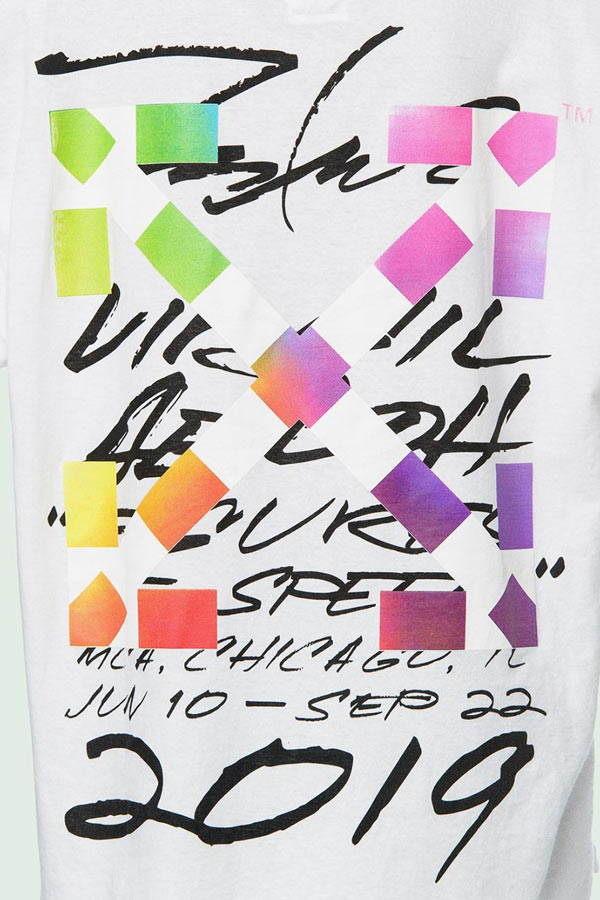 TM
VIRGIL
ABLOH
"FIGURES
OF SPEECH"
MCA, CHICAGO, IL
JUN 10 — SEP 22
2019